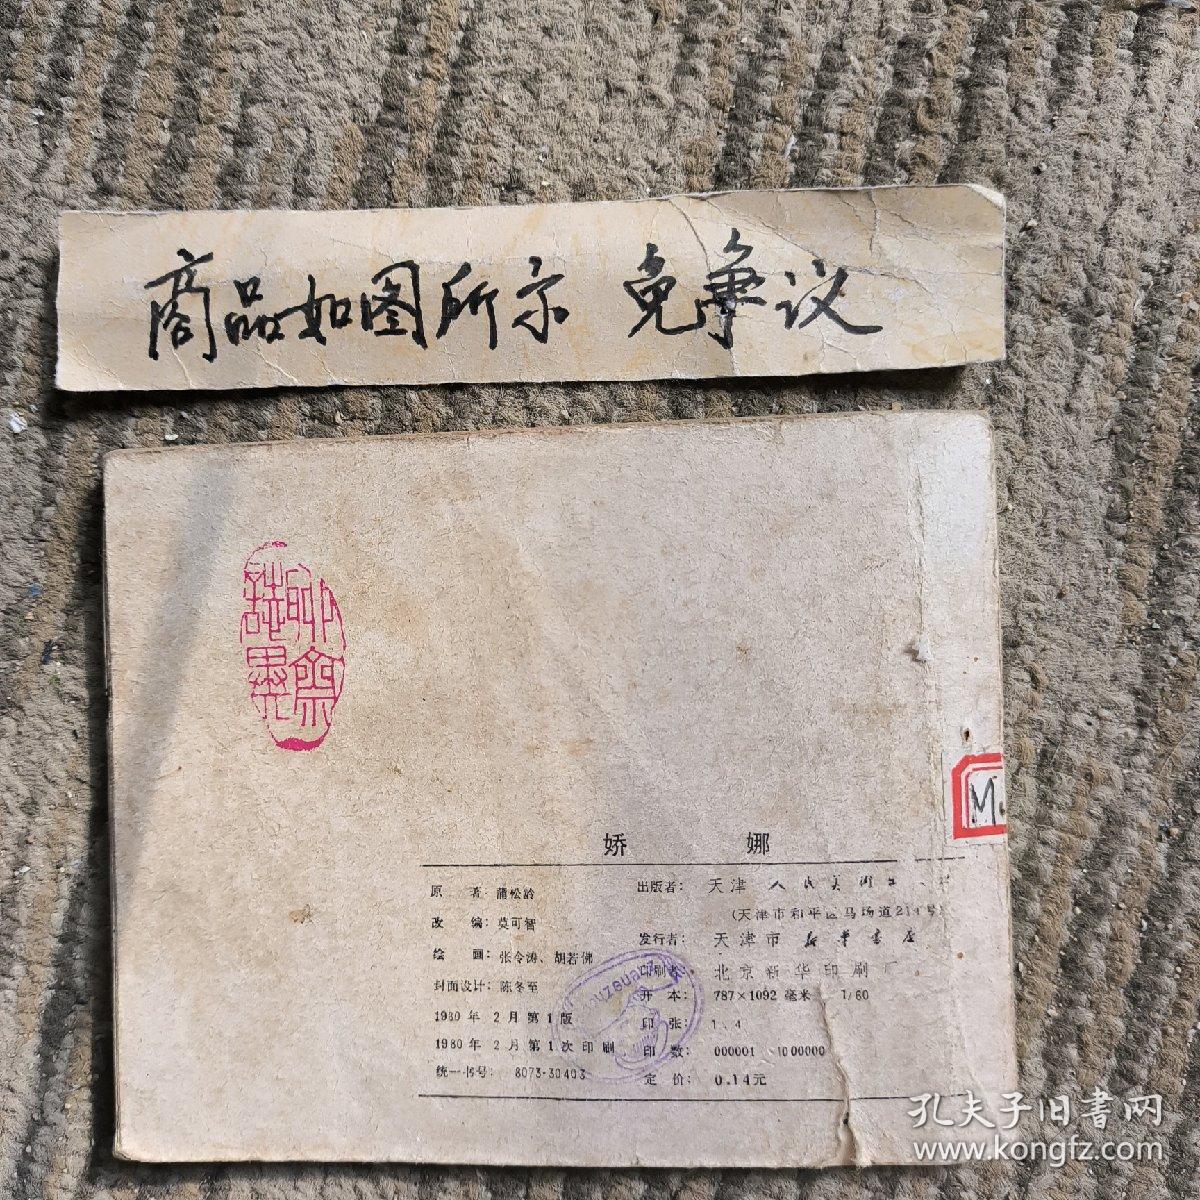 商品如图所示 免争议
聊齋
誌異
娇 娜
原 著：蒲松龄
改 编：莫可智
绘 画：张令涛、胡若佛
封面设计：陈冬至
1980年 2月第1版
1980年 2月第1次印刷
统一书号：8073-30403
出版者：天津人民美术
（天津市和平区马场道
发行者：天津市新华书店
印刷者：北京新华印刷厂
开 本：787×1092 毫米 1/60
印 张：1.4
印 数：000001 1000000
定 价：0.14元
M
孔夫子旧書网
www.kongfz.com